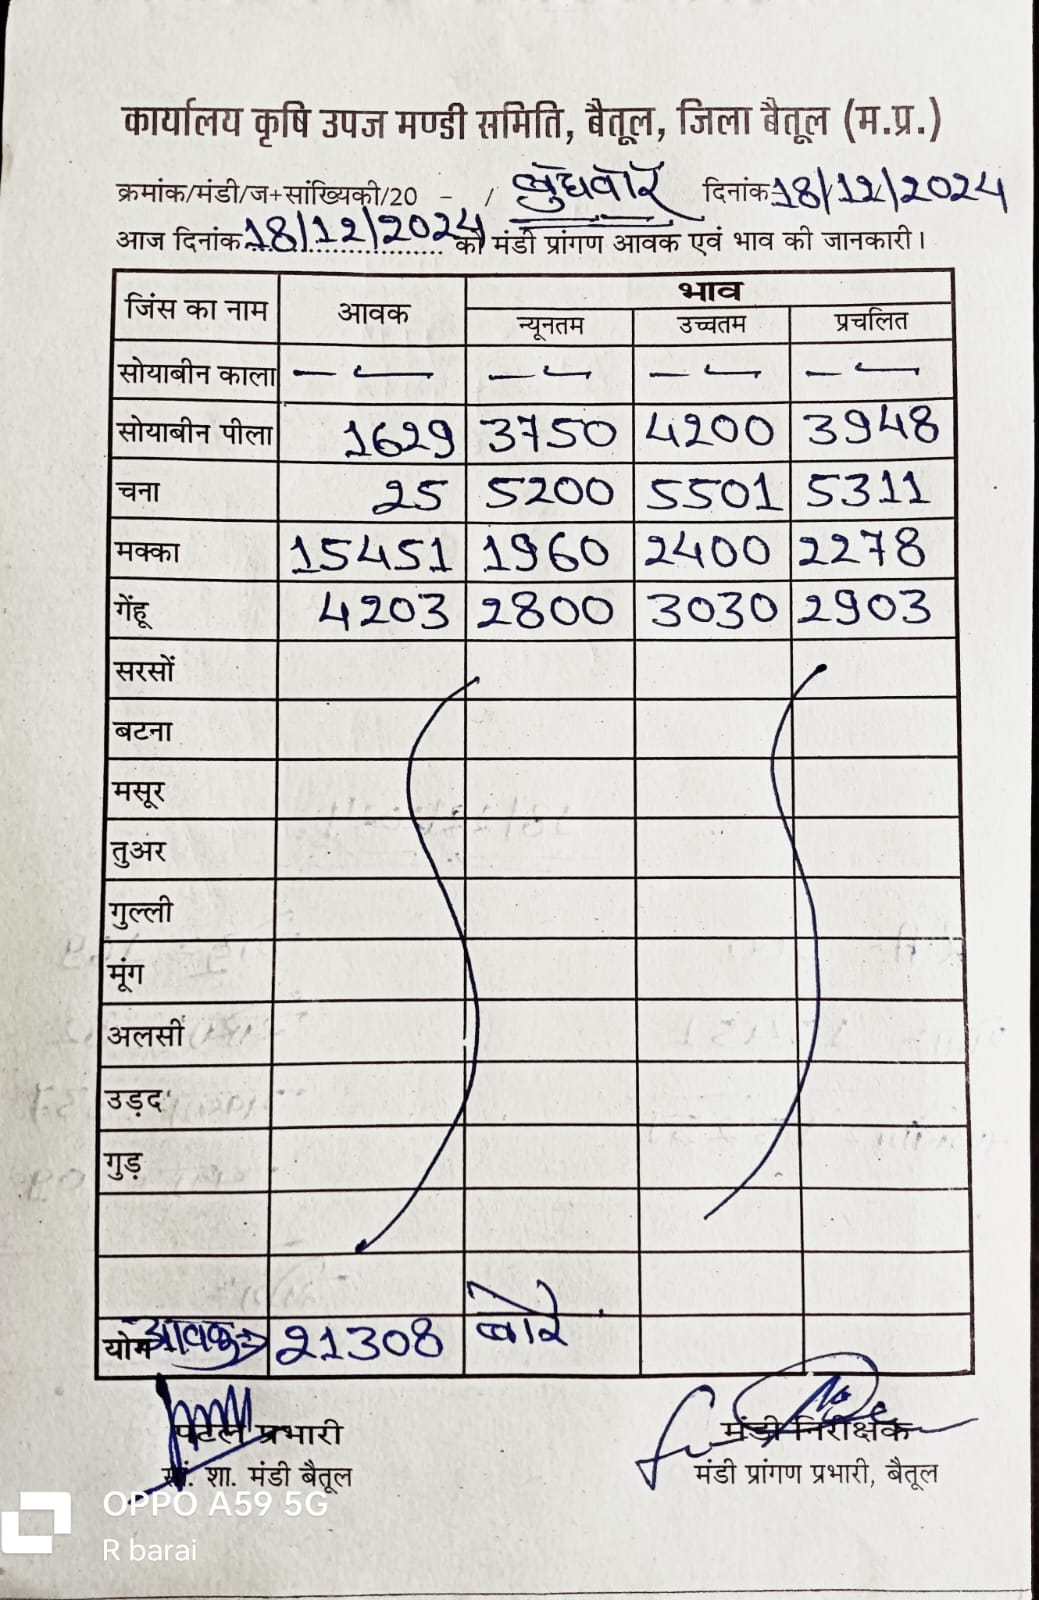 कार्यालय कृषि उपज मण्डी समिति, बैतूल, जिला बैतूल (म.प्र.)
क्रमांक/मंडी/ज+सांख्यिकी/20 - / बुधवार दिनांक 18/12/2024
आज दिनांक 18/12/2024 को मंडी प्रांगण आवक एवं भाव की जानकारी।
जिंस का नाम आवक भाव
न्यूनतम उच्चतम प्रचलित
सोयाबीन काला — — — — — — — —
सोयाबीन पीला 1629 3750 4200 3948
चना 25 5200 5501 5311
मक्का 15451 1960 2400 2278
गेंहू 4203 2800 3030 2903
सरसों
बटना
मसूर
तुअर
गुल्ली
मूंग
अलसी
उड़द
गुड़
योग आवक→ 21308 बोरे
पटल प्रभारी मंडी निरीक्षक
सां. शा. मंडी बैतूल मंडी प्रांगण प्रभारी, बैतूल
OPPO A59 5G
R barai